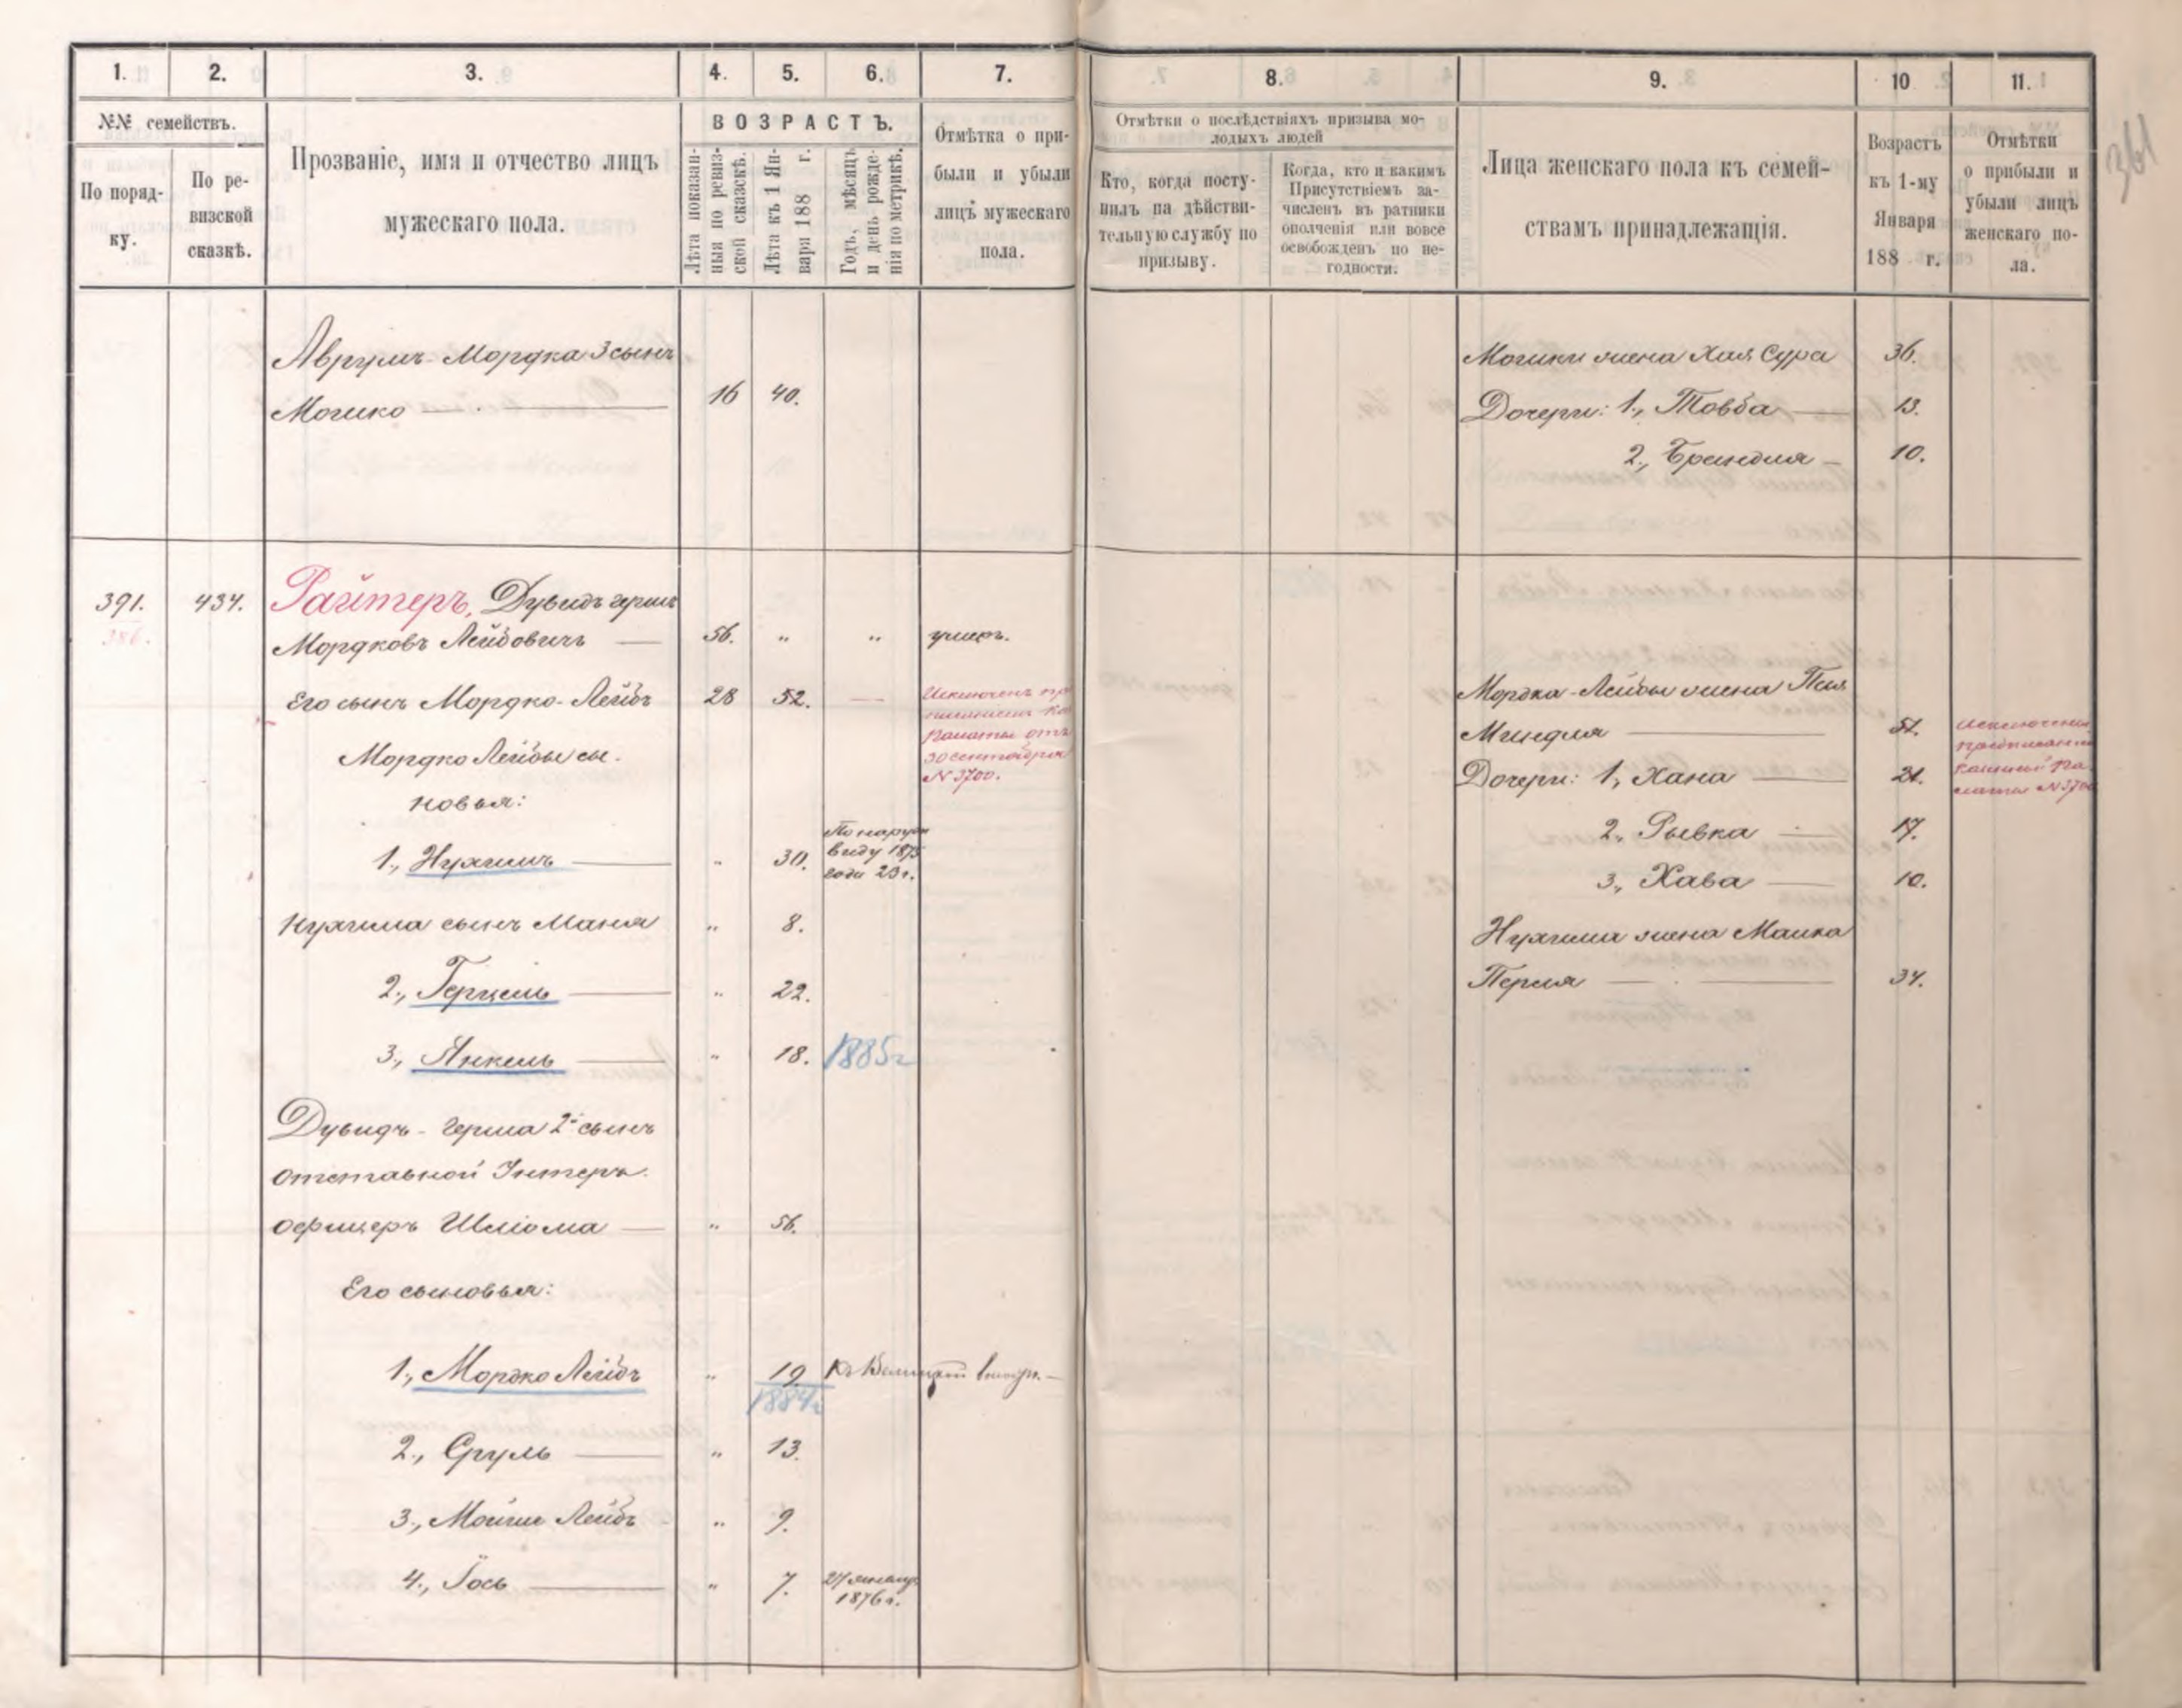 1. 2. 3. 4. 5. 6. 7. 8. 9. 10 11.
№№ семействъ.
По поряд-
ку.
По ре-
визской
сказкѣ.
Прозваніе, имя и отчество лицъ
мужескаго пола.
ВОЗРАСТЪ.
Лѣта показан-
ныя по ревиз-
ской сказкѣ.
Лѣта къ 1 Ян-
варя 188 г.
Годъ, мѣсяцъ
и день рожде-
нія по метрикѣ.
Отмѣтка о при-
были и убыли
лицъ мужескаго
пола.
Отмѣтки о послѣдствіяхъ призыва мо-
лодыхъ людей
Кто, когда посту-
пилъ на дѣйстви-
тельную службу по
призыву.
Когда, кто и какимъ
Присутствіемъ за-
численъ въ ратники
ополченія или вовсе
освобожденъ по не-
годности.
Лица женскаго пола къ семей-
ствамъ принадлежащія.
Возрастъ
къ 1-му
Января
188 г.
Отмѣтки
о прибыли и
убыли лицъ
женскаго по-
ла.
361
Аврумъ-Мордка 3 сынъ
Мошко 16 40.
Мошки жена Хая Сура 36.
Дочери: 1., Товба 13.
2., Брендля 10.
391. 434. Райтеръ, Дувидъ герш
386.
Мордковъ Лейбовичъ 56. " " умеръ.
Его сынъ Мордко-Лейбъ 28 52. —
Исключенъ
палаты отъ
30 сентября
№ 3700.
Мордко Лейбы сы-
новья:
1., Нухимъ " 30.
По наруж
виду 1875
года 23 г.
Нухима сынъ Маня " 8.
2., Герцель " 22.
3., Янкель " 18. 1885 г
Дувидъ-герша 2й сынъ
отставной Унтеръ-
офицеръ Шліома " 56.
Его сыновья:
1., Мордко Лейбъ " 19
1884 г
2., Сруль " 13.
3., Мойше Лейбъ " 9.
4., Іось " 7. 27 январ
1876 г.
Мордка-Лейбы жена Песя
Миндля 51.
Исключены
предписан
казенной па-
латы № 3700
Дочери: 1., Хана 21.
2., Рывка 17.
3., Хава 10.
Нухима жена Малка
Перля 34.